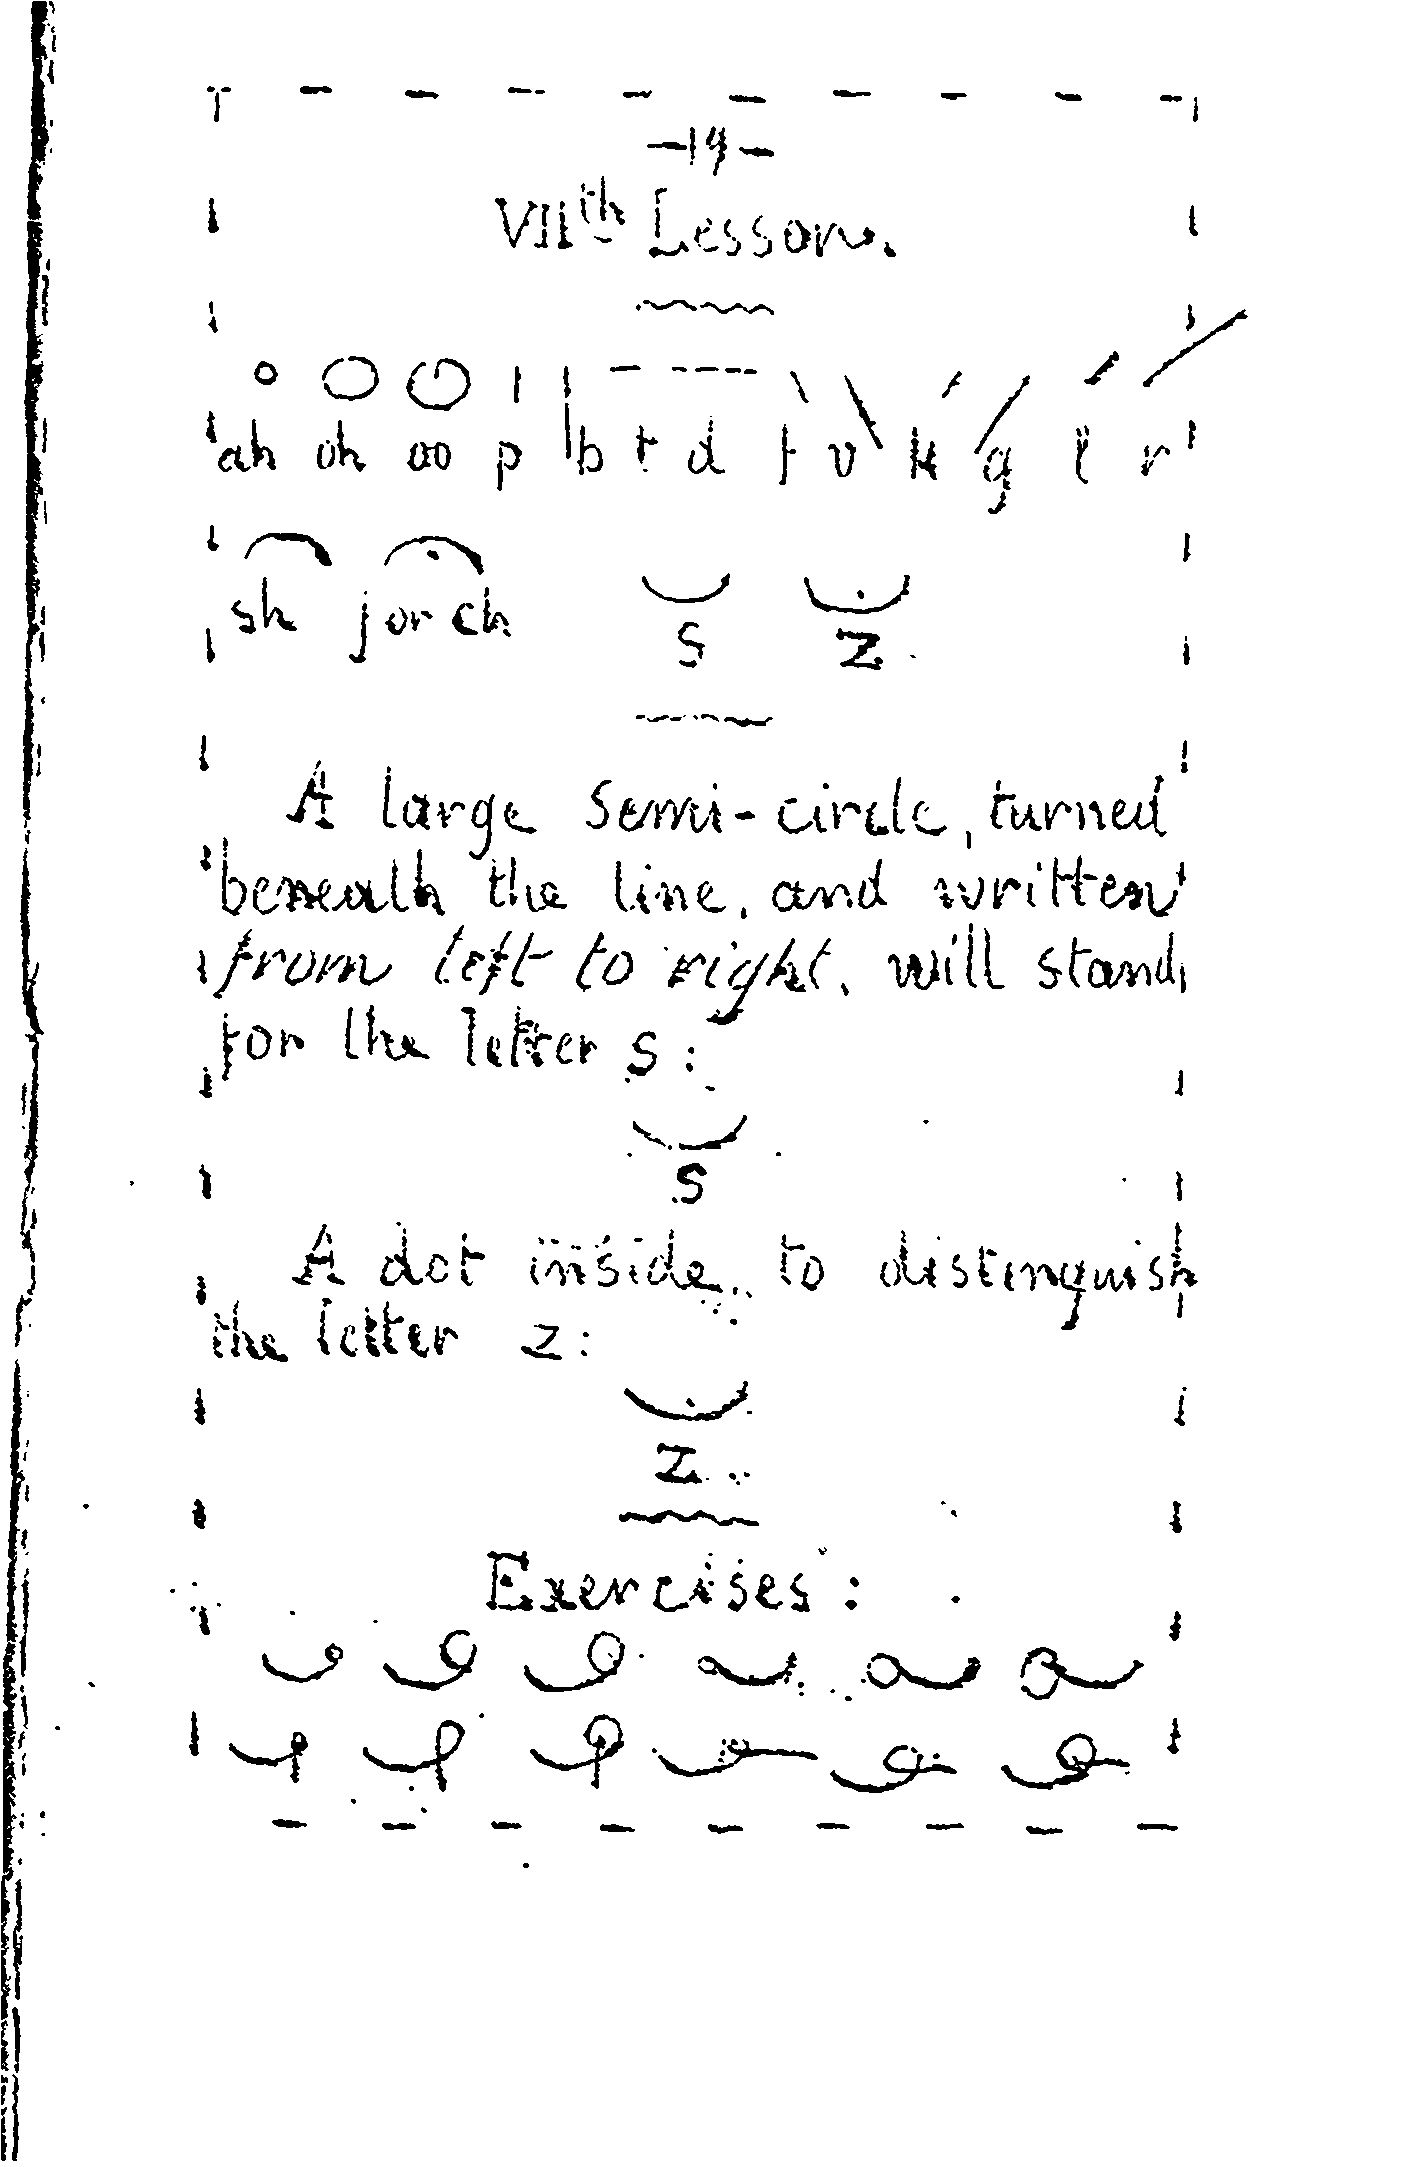 -14-
VIIth Lesson.
ah oh oo p b t d f v k g l r
sh j or ch s z
A large semi-circle, turned
beneath the line, and written
from left to right, will stand
for the letter s:
s
A dot inside, to distinguish
the letter z:
z
Exercises: